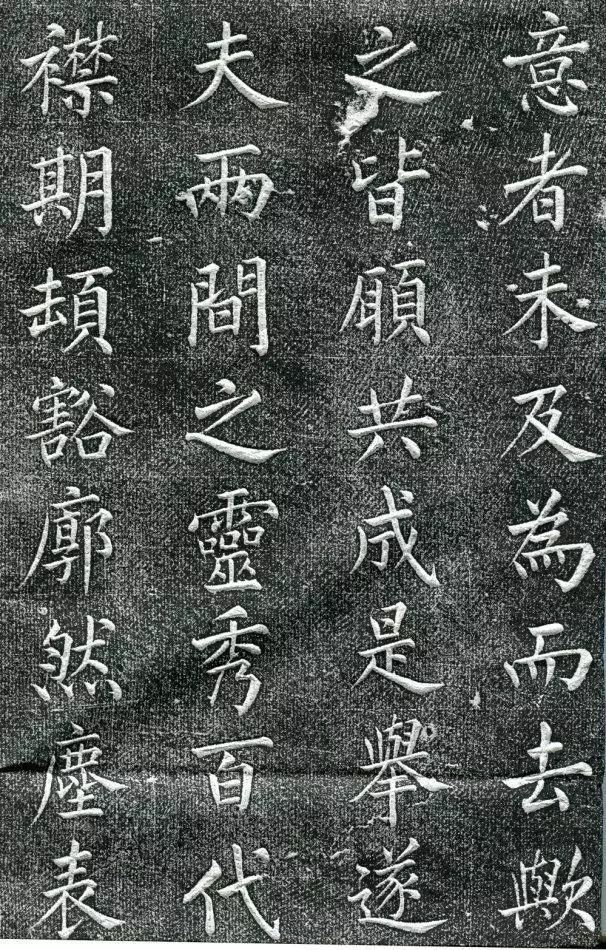 意者未及為而去歟
之皆願共成是舉遂
夫兩間之靈秀百代
襟期頓豁廓然塵表